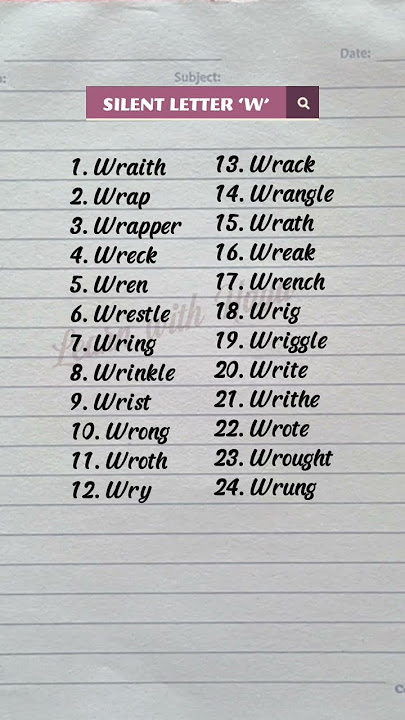 Date:
Subject:
SILENT LETTER 'W'
1. Wraith
2. Wrap
3. Wrapper
4. Wreck
5. Wren
6. Wrestle
7. Wring
8. Wrinkle
9. Wrist
10. Wrong
11. Wroth
12. Wry
13. Wrack
14. Wrangle
15. Wrath
16. Wreak
17. Wrench
18. Wrig
19. Wriggle
20. Write
21. Writhe
22. Wrote
23. Wrought
24. Wrung
Learn with